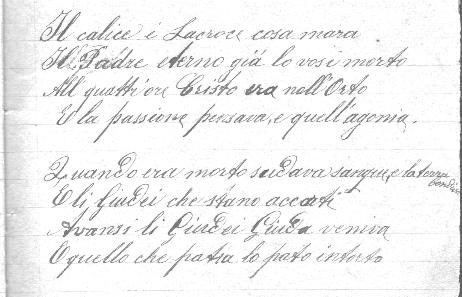 Il calice i Lacroce cosa mara
Il Padre eterno giá lo vosi morto
All quattr'ore Cristo era nell'Orto
E la passione pensava, e quell'agonia.
Quando era morto sudava sangue, e la terra
E li Giudei che stano accorti
Avansi li Giudei Giuda veniva
O quello che patia lo pato intorto